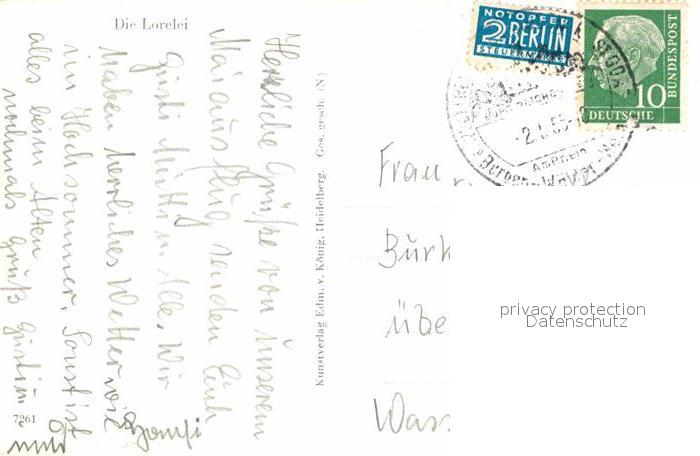 Die Lorelei
Herzliche Grüße von unserem
Maiausflug senden Euch
Gusti Mutti u Alle. Wir
haben herrliches Wetter wie
im Hochsommer. Sonst ist
alles beim Alten
nochmals Gruß
und
7261
Kunstverlag Edm. v. König, Heidelberg. Ges. gesch. (N)
NOTOPFER
2 BERLIN
STEUERMARKE
10
DEUTSCHE
BUNDESPOST
Frau
Burk
übe
Was
privacy protection
Datenschutz